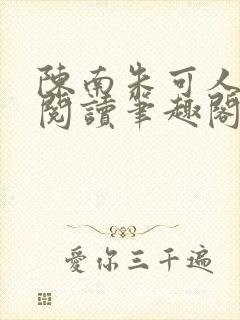 陳南朱可人
閱讀筆趣閣
愛你三千遍